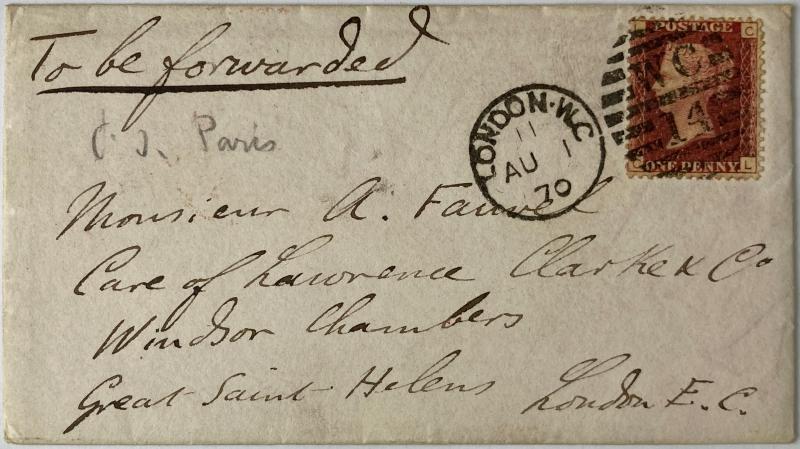 To be forwarded
POSTAGE
C
WC
14
ONE PENNY
L
LONDON·W.C
11
AU 1
70
Paris
Monsieur A. Fauvel
Care of Lawrence Clarke & Co
Windsor Chambers
Great Saint Helens London E.C.